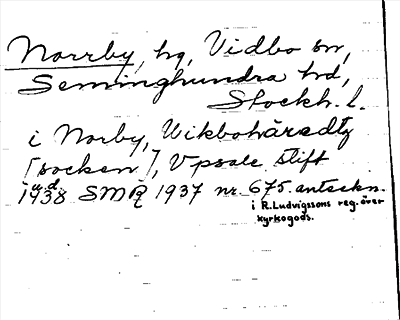 Norrby, hg, Vidbo sn,
Seminghundra hd,
Stockh. l.
i Norby, Wikbohäredtz
[socken], Vpsale stift
1938 SMR 1937 nr. 675. anteckn.
i R. Ludvigssons reg. över
kyrkogods.